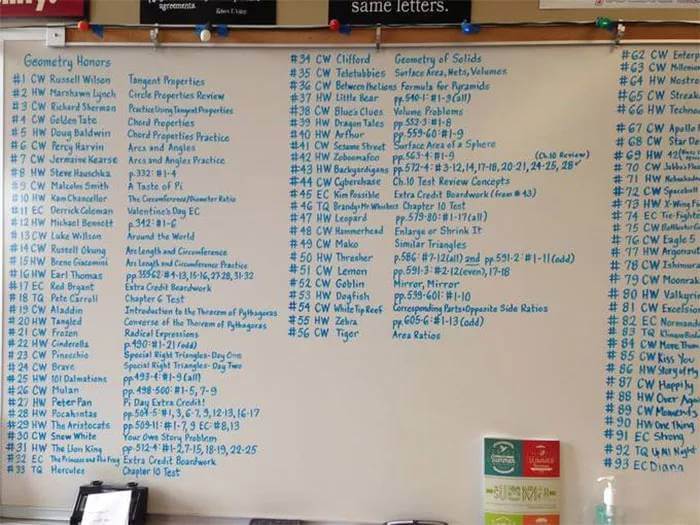 agreements.
same letters.
Geometry Honors
#1 CW Russell Wilson Tangent Properties
#2 HW Marshawn Lynch Circle Properties Review
#3 CW Richard Sherman Practice Using Tangent Properties
#4 CW Golden Tate Chord Properties
#5 HW Doug Baldwin Chord Properties Practice
#6 CW Percy Harvin Arcs and Angles
#7 CW Jermaine Kearse Arcs and Angles Practice
#8 HW Steve Hauschka p.332: #1-4
#9 CW Malcolm Smith A Taste of Pi
#10 HW Kam Chancellor The Circumference/Diameter Ratio
#11 EC Derrick Coleman Valentine's Day EC
#12 HW Michael Bennett p.342: #1-6
#13 CW Luke Willson Around the World
#14 CW Russell Okung Arc Length and Circumference
#15 HW Breno Giacomini Arc Length and Circumference Practice
#16 HW Earl Thomas #4-13, 15-16, 27-28, 31-32
#17 EC Red Bryant Extra Credit Boardwork
#18 TQ Pete Carroll Chapter 6 Test
#19 CW Aladdin Introduction to the Theorem of Pythagoras
#20 HW Tangled Converse of the Theorem of Pythagoras
#21 CW Frozen Radical Expressions
#22 HW Cinderella p.490: #1-21 (odd)
#23 CW Pinocchio Special Right Triangles-Day One
#24 CW Brave Special Right Triangles-Day Two
#25 HW 101 Dalmations pp.493-4: #1-9 (all)
#26 CW Mulan pp.498-500: #1-5, 7-9
#27 HW Peter Pan Pi Day Extra Credit!
#28 HW Pocahontas pp.504-5: #1, 3, 6-7, 9, 12-13, 16-17
#29 HW The Aristocats pp.509-11: #1-7, 9 EC: #8, 13
#30 CW Snow White Your Own Story Problem
#31 HW The Lion King pp.512-4: #1-2, 7-15, 18-19, 22-25
#32 EC The Princess and The Frog Extra Credit Boardwork
#33 TQ Hercules Chapter 10 Test
#34 CW Clifford Geometry of Solids
#35 CW Teletubbies Surface Area, Nets, Volumes
#36 CW Between the Lions Formula for Pyramids
#37 HW Little Bear pp.540-1: #1-9 (all)
#38 CW Blue's Clues Volume Problems
#39 HW Dragon Tales pp.552-3: #1-8
#40 HW Arthur pp.559-60: #1-9
#41 CW Sesame Street Surface Area of a Sphere
#42 HW Zoboomafoo pp.563-4: #1-9 (Ch.10 Review)
#43 HW Backyardigans pp.572-4: #3-12, 14, 17-18, 20-21, 24-25, 28
#44 CW Cyberchase Ch.10 Test Review Concepts
#45 EC Kim Possible Extra Credit Boardwork (from #43)
#46 TQ Brandy & Mr. Whiskers Chapter 10 Test
#47 HW Leopard pp.579-80: #1-17 (all)
#48 CW Hammerhead Enlarge or Shrink It
#49 CW Mako Similar Triangles
#50 HW Thresher p.586: #7-12 (all) and pp.591-2: #1-11 (odd)
#51 CW Lemon pp.591-3: #2-12 (even), 17-18
#52 CW Goblin Mirror, Mirror
#53 HW Dogfish pp.599-601: #1-10
#54 CW White Tip Reef Corresponding Parts & Opposite Side Ratios
#55 HW Zebra pp.605-6: #1-13 (odd)
#56 CW Tiger Area Ratios
#62 CW Enterp
#63 CW
#64 HW Nostro
#65 CW Streak
#66 HW Techno
#67 CW Apollo
#68 CW Star De
#69 HW 42
#70 CW Jabba's
#71 HW
#72 CW Spacebal
#73 HW X-Wing Fi
#74 EC Tie-Fighte
#75 CW
#76 CW Eagle 5
#77 HW Argonaut
#78 CW
#79 CW Moonrak
#80 HW Valkyri
#81 CW Excelsior
#82 EC
#83 TQ
#84 CW More Than
#85 CW Kiss You
#86 HW Story of My
#87 CW Happily
#88 HW Over Again
#89 CW Moments
#90 HW One Thing
#91 EC Strong
#92 TQ Up All Night
#93 EC Diana
SUMMER